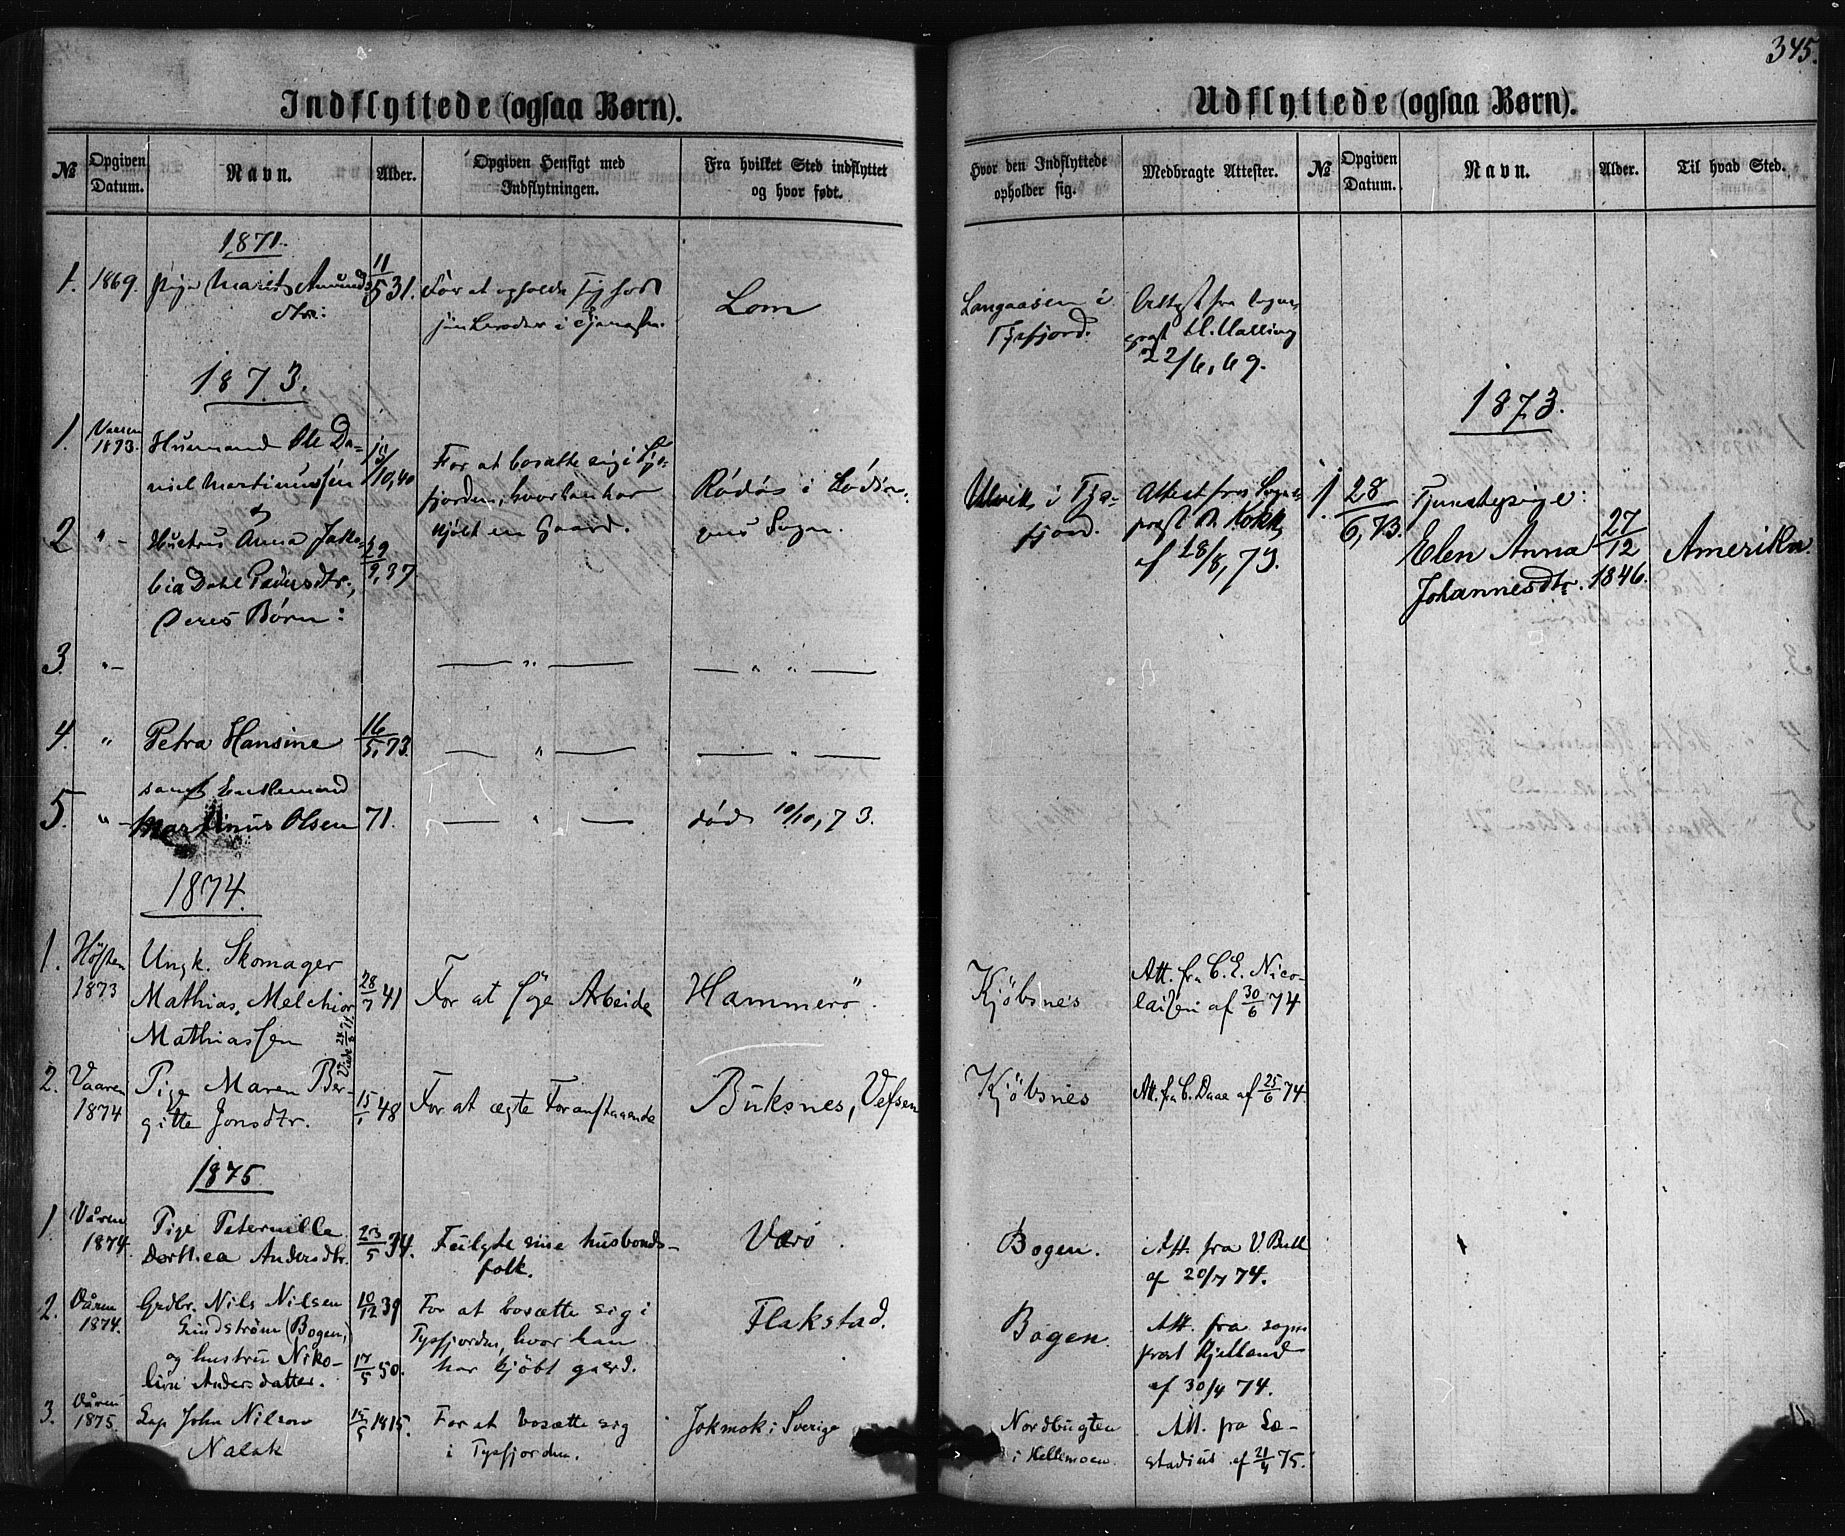 345.
Indflyttede (ogsaa Børn).
Udflyttede (ogsaa Børn).
№ Opgiven Datum. Navn. Alder. Opgiven Hensigt med Indflytningen. Fra hvilket Sted indflyttet og hvor født.
Hvor den Indflyttede opholder sig. Medbragte Attester. № Opgiven Datum. Navn. Alder. Til hvad Sted.
1871.
1. 1869. Pige Marit Amunds- 11/5 31. For at opholde sig hos Lom
dtr:
Langaasen i Attest fra Sogne-
Tysfjord. prest
22/6, 69.
1873.
1. Vaaren 1873. Husmand Ole Da- /10, 40 For at bosætte sig i Tys-
niel Martinussen fjorden, hvor han har Rödös i Rödös
2 " - Hustru Anna Jako- 29/9, 37 kjöbt en Gaard. Sogn.
bia Dahl Pedersdtr.,
Deres Børn:
Ulvik i Tys- Attest fra Sogne-
fjord. prest Kokk
af 28/8, 73.
1873.
1. 28/6, 73. Tjenestepige:
Elen Anna 27/12 Amerika.
Johannesdtr. 1846.
3. " - — " — — " " —
4. " Petra Hansine 16/5, 73. — " — — " —
samt Enkemand
5. " - Martinus Olsen 71. — " — død 10/10, 73.
1874.
1. Høsten Ungk. Skomager
1873 Mathias Melchior 28/7 41 For at søge Arbeide Hammerö.
Mathiassen
Kjöbsnes Att. fra C. E. Nico-
laisen af 30/6 74
2. Vaaren Pige Maren Ber-
1874 gitte Jonsdtr. 15/1 48 For at ægte Foranstaaende Buksnes, Vefsen
Kjöbsnes Att. fra C. Daae af 25/6 74.
1875
1. Våren Pige Petternille
1874. Dorthea Andersdtr. 23/5 34. Fulgte sine husbonds- Værö.
folk.
Bogen. Att. fra V. Bull
af 20/7 74.
2. Våren Grdbr. Nils Nilsen 10/12 39 For at bosætte sig i Flakstad.
1874. Lindström (Bogen,) Tysfjorden, hvor han
og hustru Niko- 17/5 50. har kjöbt gård.
line Andersdatter.
Bogen. Att. fra sogne-
prest Kjelland
af 30/4 74.
3. Våren Lap John Nilsen 15/5 1815. For at bosætte sig Jokmok i Sverige
1875. Nalak i Tysfjorden.
Nordbugten Att. fra Læ-
i Hellemoen. stadius af 21/4 75.